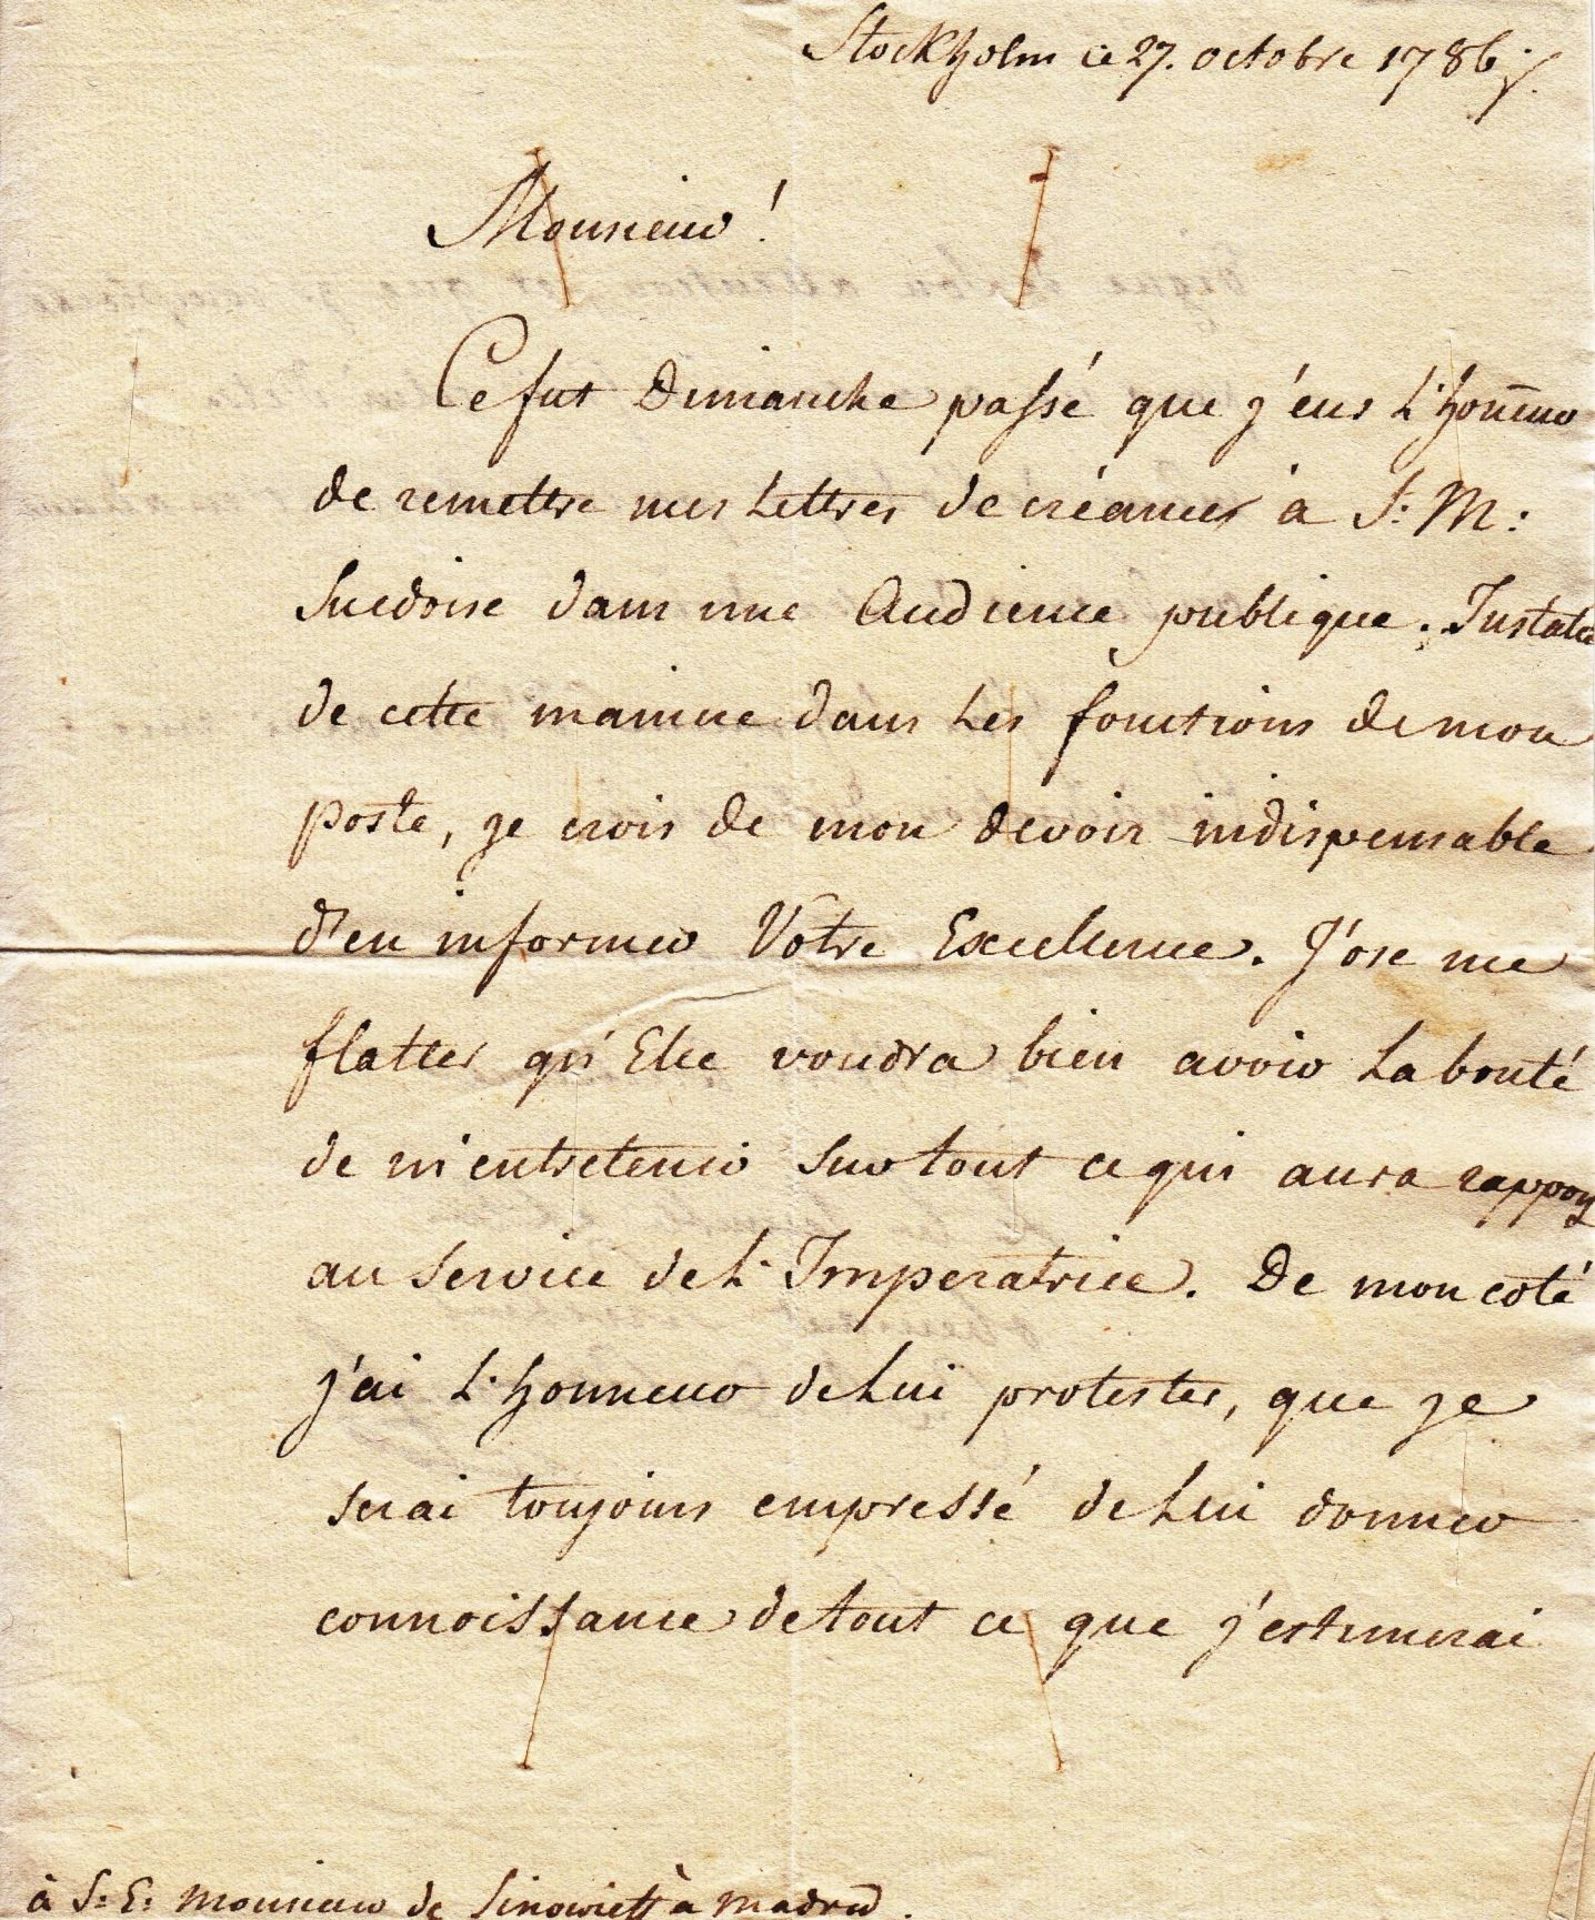 Stockholm ce 27. octobre 1786
Monsieur!
Ce fut Dimanche passé que j'eus L'honneur
de remettre mes Lettres de créances à S: M:
Suedoise dans une Audience publique. Instalé
de cette maniere dans Les fonctions de mon
poste, je crois de mon devoir indispensable
d'en informer Votre Excellence. J'ose me
flatter qu'Elle voudra bien avoir La bonté
de m'entretenir sur tout ce qui aura rapport
au Service de L'Imperatrice. De mon coté
j'ai L'honneur de Lui protester, que je
serai toujours empressé de Lui donner
connoissance de tout ce que j'estimerai
à S: E: Monsieur de Sinowieff à Madrid.